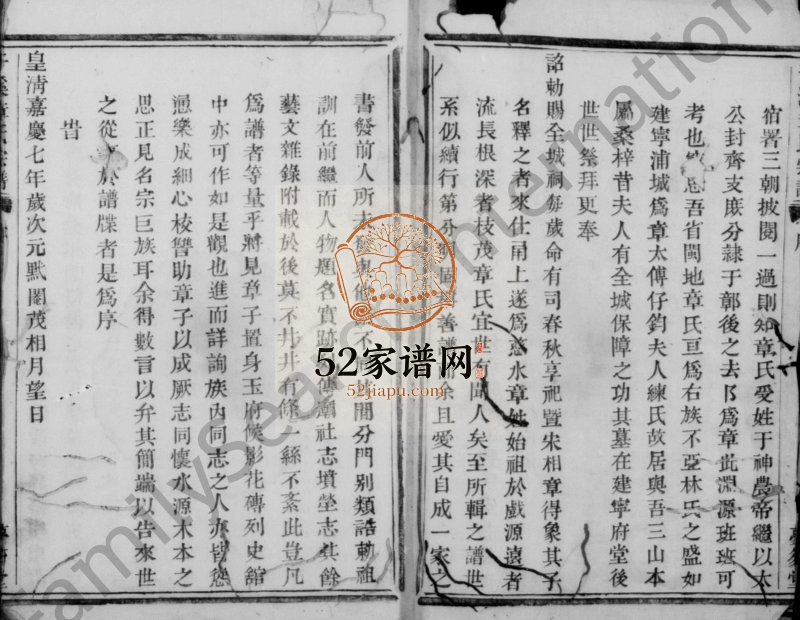 宿署三朝披閱一過則知章氏受姓于神農帝繼以太
公封齊支庶分隸于鄣後之去阝爲章此淵源班班可
考也吾省閩地章氏亘爲右族不亞林氏之盛如
建寧浦城爲章太傅仔鈞夫人練氏故居與吾三山本
屬桑梓昔夫人有全城保障之功其墓在建寧府堂後
世世祭拜更奉
詔勅賜全城祠每歲命有司春秋享祀暨宋相章得象其子
名釋之者來仕甬上遂爲慈水章姓始祖於戲源遠者
流長根深者枝茂章氏宜世有聞人矣至所輯之譜世
系似續行第分善余且愛其自成一家之
書發前人所不開分門别類誥勅祖
訓在前繼而人物題名實跡傳廟社志墳塋志其餘
藝文雜錄附載於後莫不井井有條絲不紊此豈凡
爲譜者等量乎將見章子置身玉府候影花磚列史舘
中亦可作如是觀也進而詳詢族內同志之人亦皆慫
慂樂成細心校讐助章子以成厥志同懷水源木本之
思正見名宗巨族耳余得數言以弁其簡端以告來世
之從於譜牒者是爲序
旹
皇清嘉慶七年歲次元黓閹茂相月望日
52家谱网
52jiapu.com
FamilySearch International